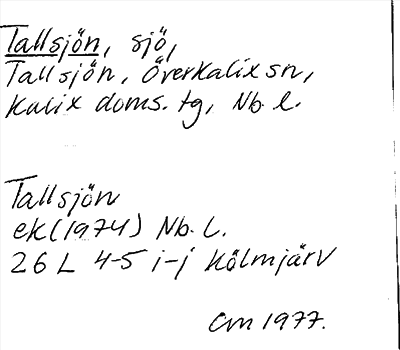 Tallsjön, sjö,
Tallsjön, Överkalix sn,
Kalix doms. tg, Nb. l.
Tallsjön
ek (1974) Nb. L.
26 L 4-5 i-j Kölmjärv
1977.